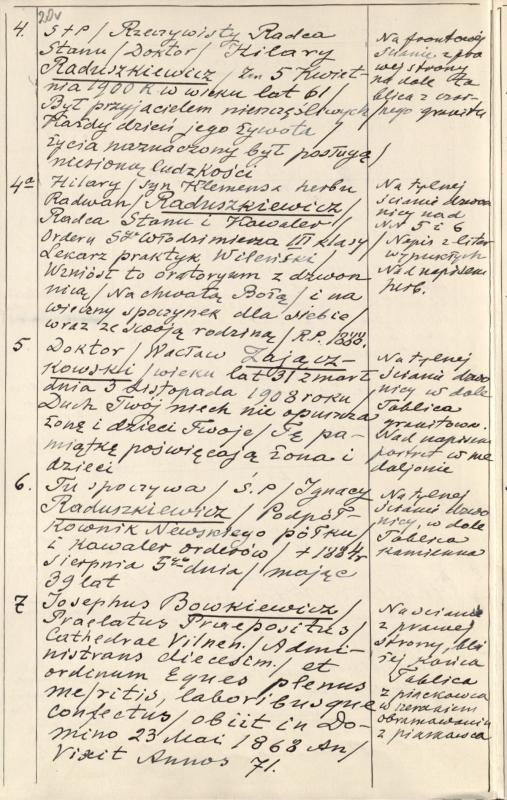 20v
4. S+P / Rzeczywisty Radca
Stanu / Doktor / Hilary
Raduszkiewicz / Zm 5 Kwiet-
nia 1900 R w wieku lat 61 /
Był przyjacielem nieszczęśliwych
Każdy dzień jego żywota /
życia naznaczony był posługą /
niesioną ludzkości
Na frontowej
ścianie z pra
wej strony
na dole ta
blica z czar-
nego granitu
4a Hilary / syn Klemensa herbu
Radwan / Raduszkiewicz /
Radca Stanu i Kawaler /
Orderu Sgo Włodzimierza III klasy /
Lekarz praktyk Wileński /
Wzniósł to oratoryum z dzwon-
nicą / Na chwałę Bożą / i na
wieczny spoczynek dla siebie /
wraz ze swoją rodziną / R.P. 1888.
Na tylnej
ścianie dzwo
nicy nad
NN 5 i 6
Napis z liter
wypukłych
Nad napisem
herb.
5 Doktor / Wacław Zającz-
kowski / wieku lat 31 zmarł
dnia 3 Listopada 1908 roku /
Duch Twój niech nie opuszcza
żonę i dzieci Twoje / Tę pa-
miątkę poświęcają żona i
dzieci
Na tylnej
ścianie dzwo
nicy w dole
Tablica
granitowa.
Nad napisem
portret w me
daljonie
6. Tu spoczywa / Ś.P / Ignacy
Raduszkiewicz / Podpół-
kownik Newskiego półku /
i Kawaler orderów / + 1884 r
Sierpnia 5go dnia / mając
39 lat
Na tylnej
ścianie dzwo
nicy, w dole
Tablica
kamienna
7 Josephus Bowkiewicz /
Praelatus Praepositus /
Cathedrae Vilnen. / Admi-
nistrans diecesim. / et
ordinum Eques plenus
me/ritis, laboribusque
confectus / obiit in Do-
mino 23 Mai 1868 An /
Vixit Annos 71.
Na ścianie
z prawej
strony, bli
żej końca
Tablica
z piaskowca
w szerokiem
obramowaniu
z piaskowca